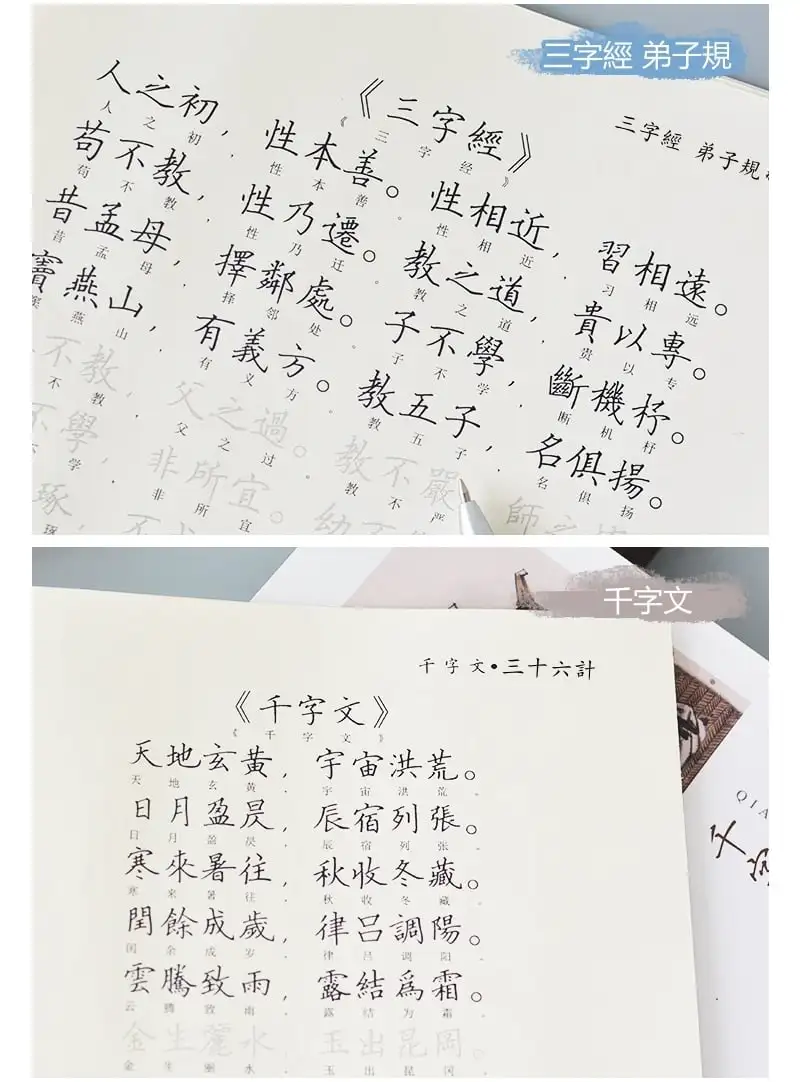 三字經 弟子規
三字經 弟子規
《三字經》
《三字经》
人之初，性本善。性相近，習相遠。
人之初，性本善。性相近，习相远。
苟不教，性乃遷。教之道，貴以專。
苟不教，性乃迁。教之道，贵以专。
昔孟母，擇鄰處。子不學，斷機杼。
昔孟母，择邻处。子不学，断机杼。
竇燕山，有義方。教五子，名俱揚。
窦燕山，有义方。教五子，名俱扬。
不教，父之過。教不嚴，師之
不教，父之过。教不严
不學，非所宜。幼不
不学，非所宜
琢，不
琢
千字文
千字文•三十六計
《千字文》
《千字文》
天地玄黃，宇宙洪荒。
天地玄黄，宇宙洪荒。
日月盈昃，辰宿列張。
日月盈昃，辰宿列张。
寒來暑往，秋收冬藏。
寒来暑往，秋收冬藏。
閏餘成歲，律呂調陽。
闰余成岁，律吕调阳。
雲騰致雨，露結爲霜。
云腾致雨，露结为霜。
金生麗水，玉出昆岡。
金生丽水，玉出昆冈。
QIA
千字